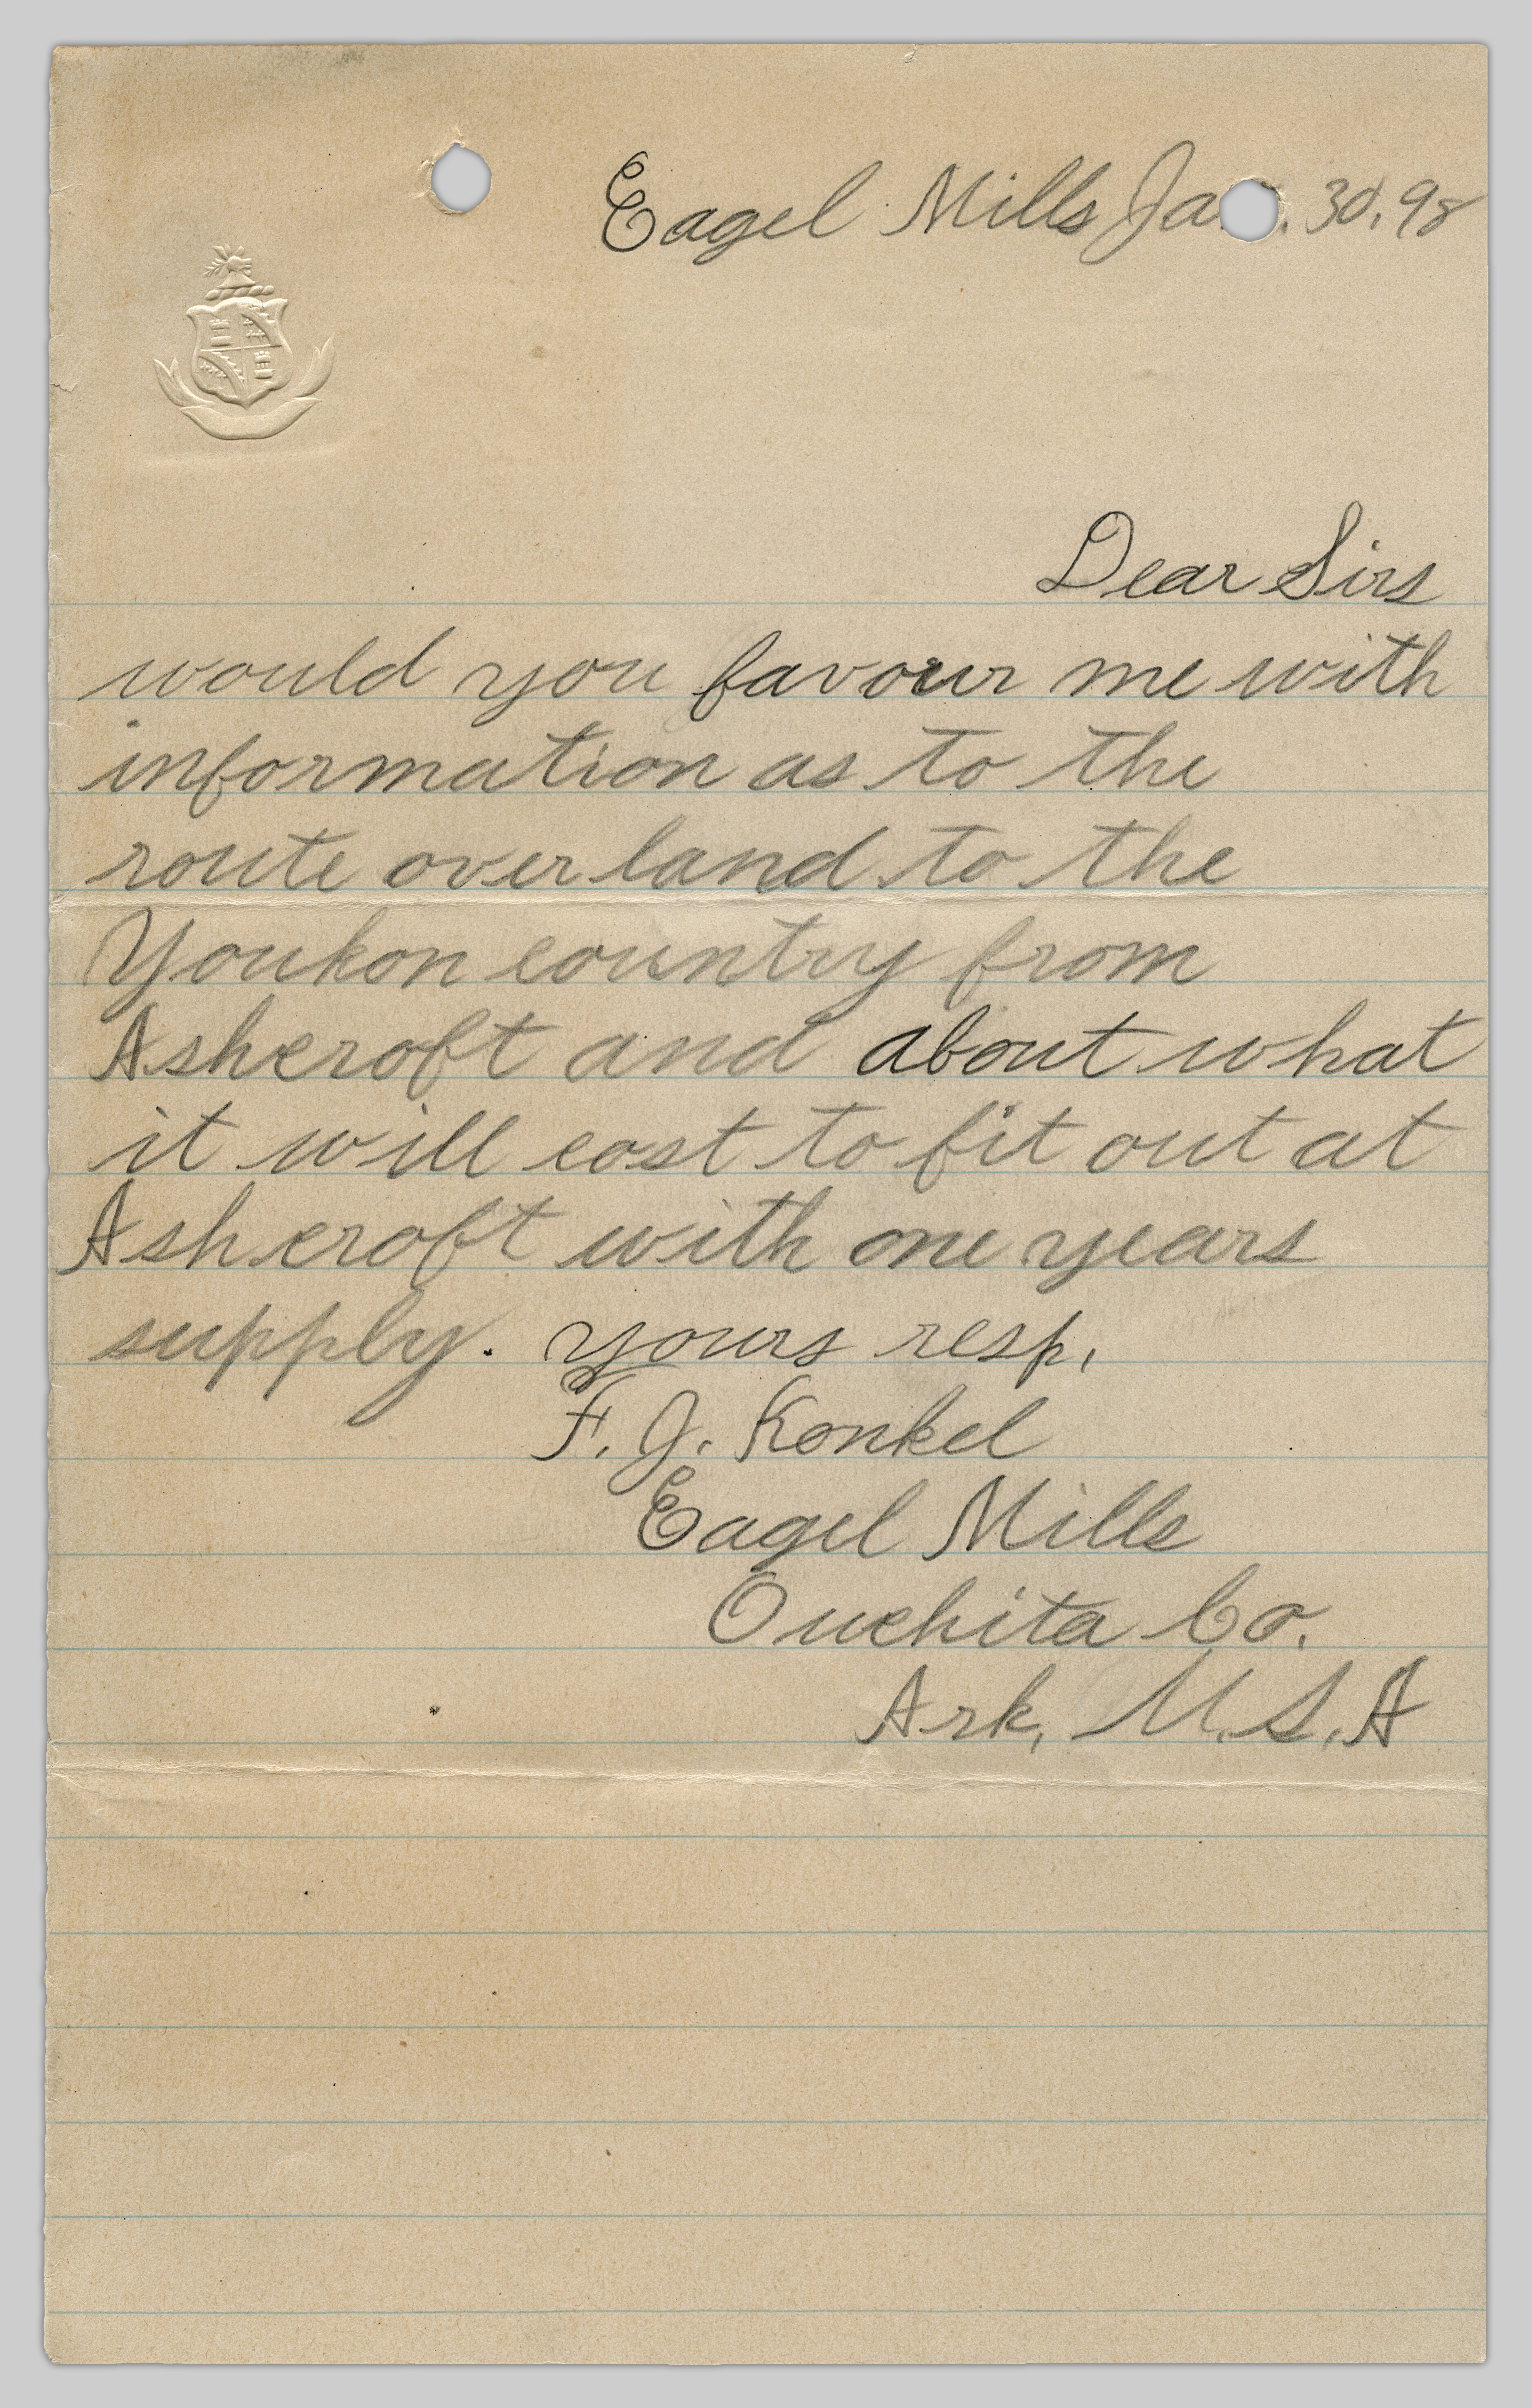 Eagel Mills Ja . 30, 98
Dear Sirs
would you favour me with
information as to the
route over land to the
Youkon country from
Ashcroft and about what
it will cost to fit out at
Ashcroft with one years
supply. yours resp,
F. J. Konkel
Eagel Mills
Ouchita Co.
Ark, U. S. A